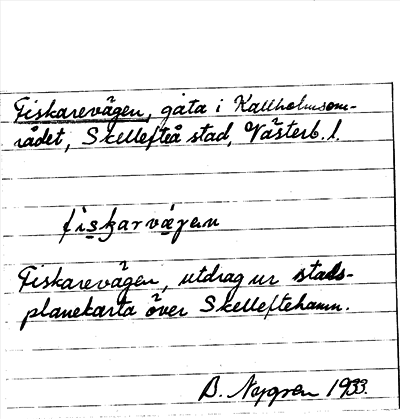 Fiskarevägen, gata i Kallholmsom-
rådet, Skellefteå stad, Västerb. l.
fiskarvägen
Fiskarevägen, utdrag ur stads-
planekarta över Skelleftehamn.
B. Nygren 1933.